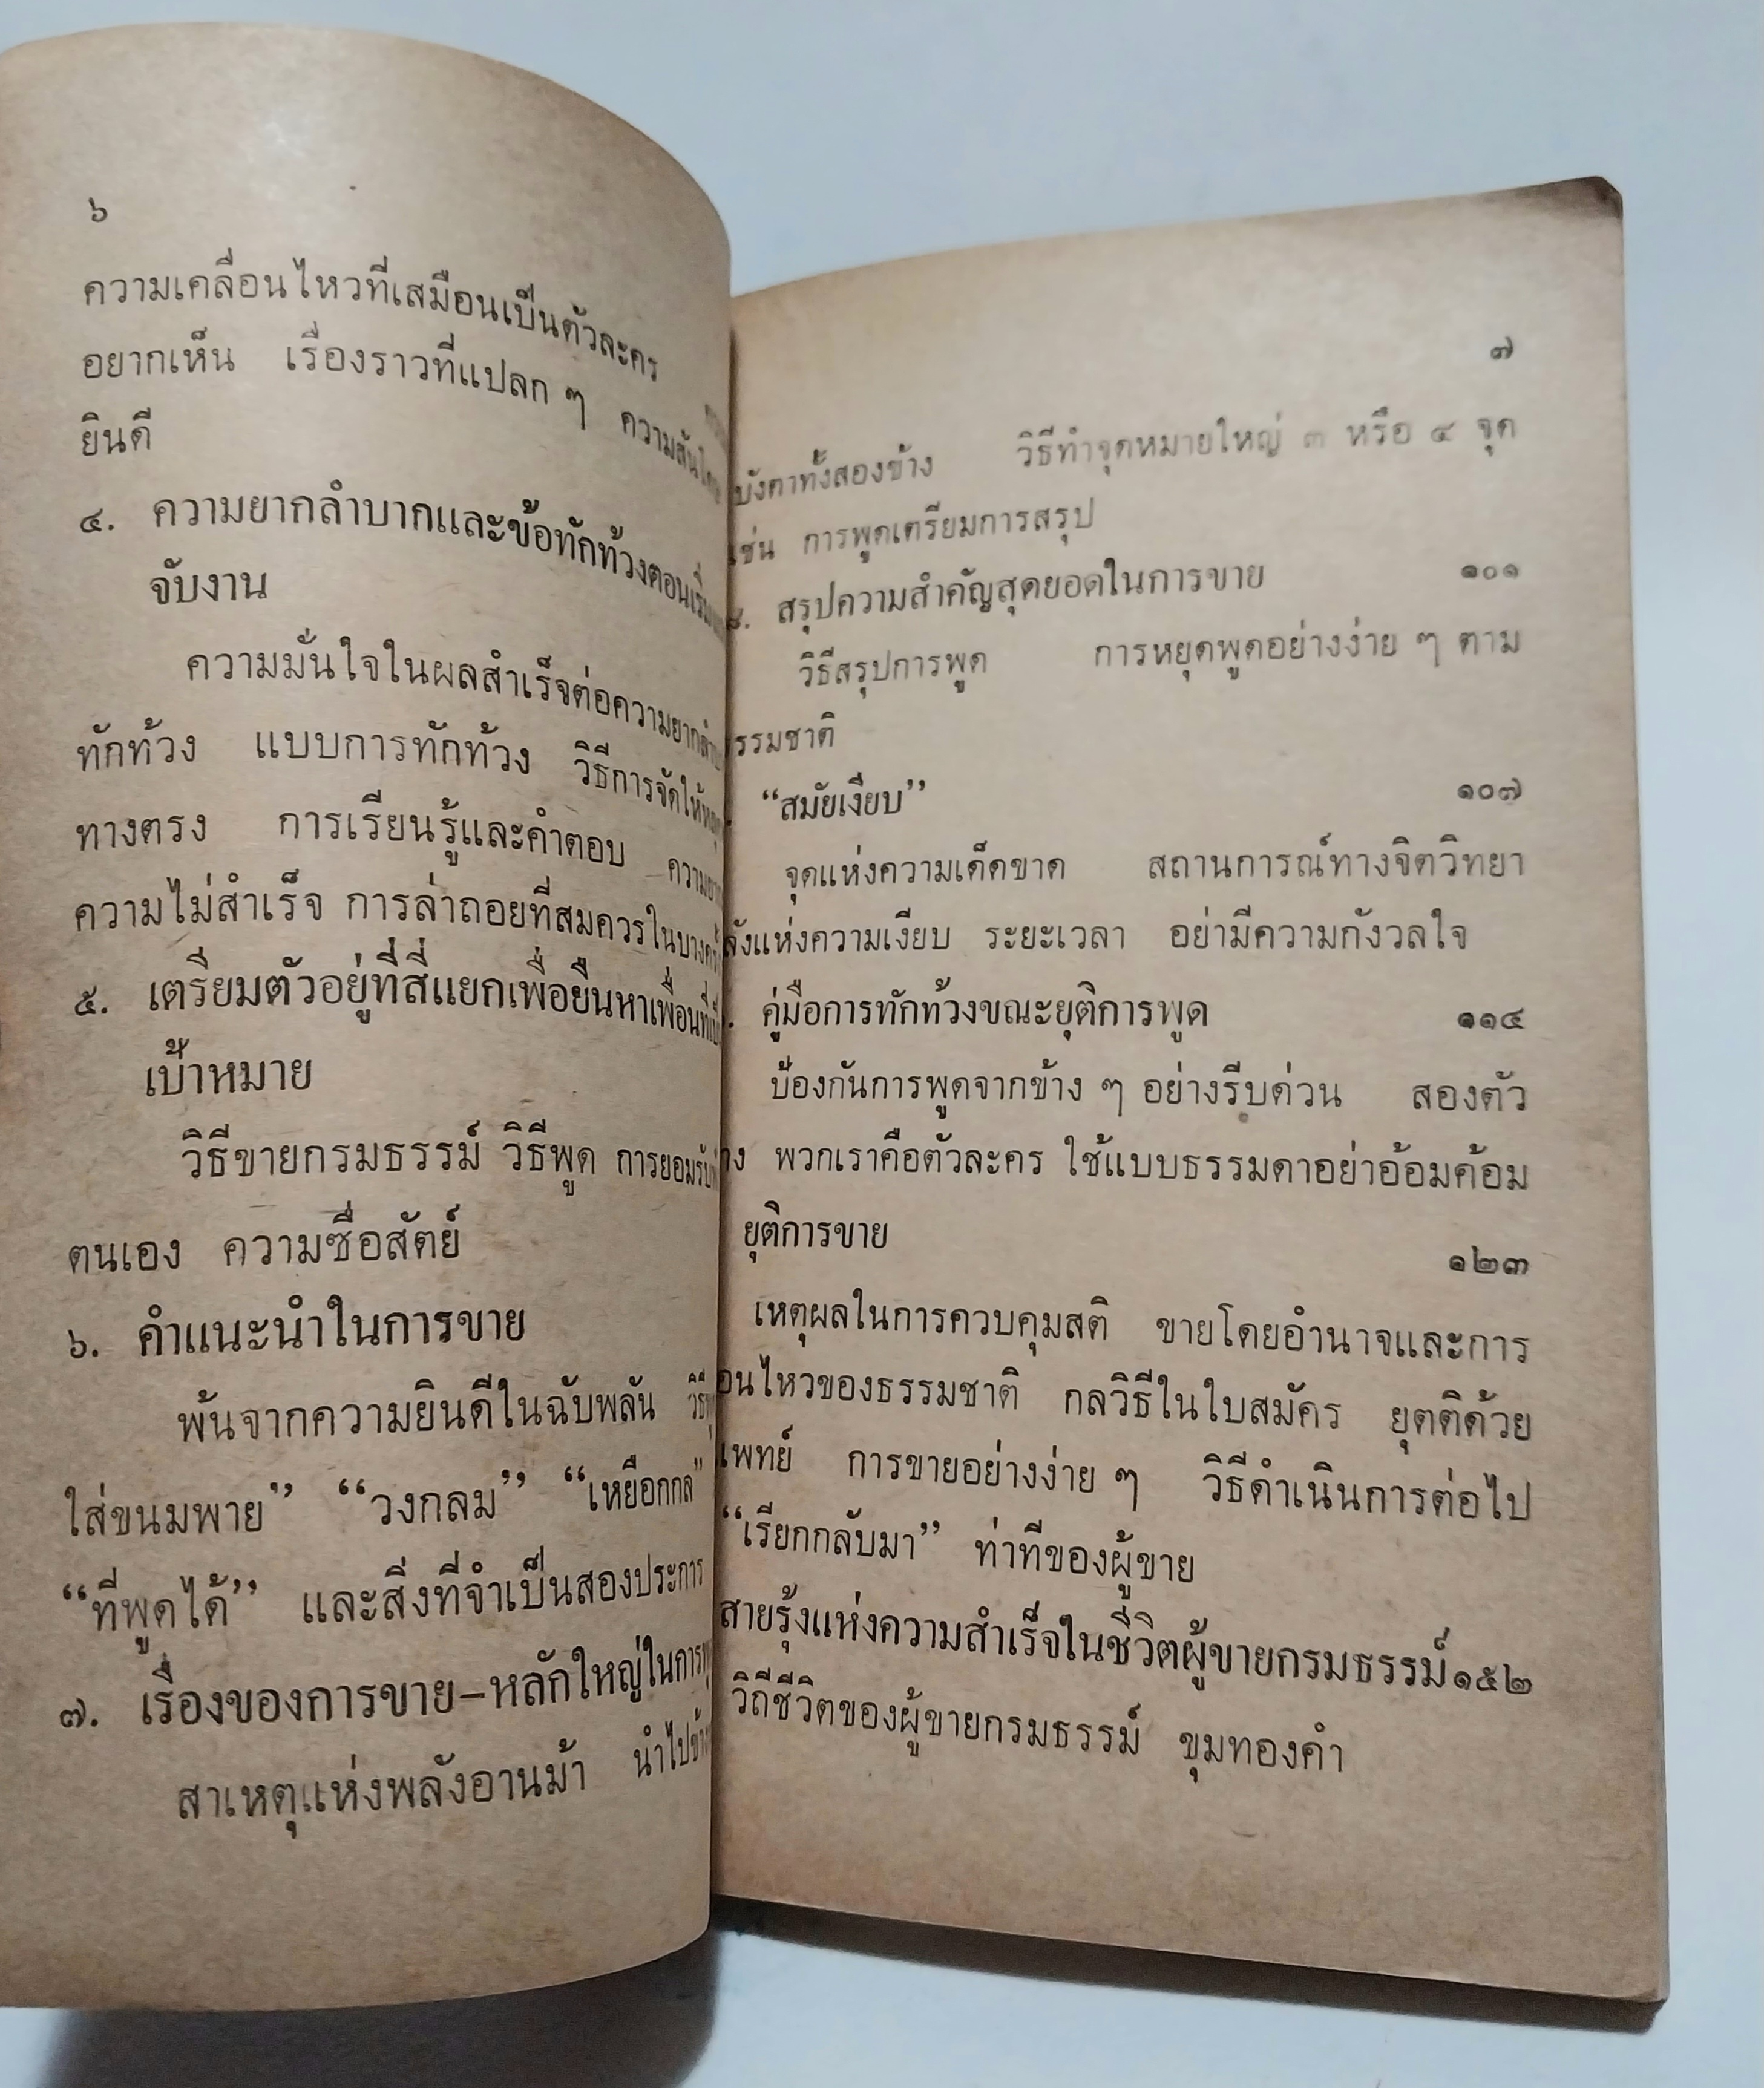 ๖
ความเคลื่อนไหวที่เสมือนเป็นตัวละคร
อยากเห็น เรื่องราวที่แปลก ๆ
ยินดี
๔. ความยากลำบากและข้อทักท้วงตอนเริ่ม
จับงาน
ความมั่นใจในผลสำเร็จต่อความยาก
ทักท้วง แบบการทักท้วง วิธีการจัดให้
ทางตรง การเรียนรู้และคำตอบ
ความไม่สำเร็จ การล่าถอยที่สมควรในบาง
๕. เตรียมตัวอยู่ที่สี่แยกเพื่อยืนหาเพื่อนที่
เป้าหมาย
วิธีขายกรมธรรม์ วิธีพูด การยอมรับ
ตนเอง ความซื่อสัตย์
๖. คำแนะนำในการขาย
พ้นจากความยินดีในฉับพลัน
ใส่ขนมพาย” “วงกลม” “เหยือกกล”
“ที่พูดได้” และสิ่งที่จำเป็นสองประการ
๗. เรื่องของการขาย–หลักใหญ่ในการ
สาเหตุแห่งพลังอานม้า นำไป
๗
บังตาทั้งสองข้าง วิธีทำจุดหมายใหญ่ ๓ หรือ ๔ จุด
เช่น การพูดเตรียมการสรุป
๘. สรุปความสำคัญสุดยอดในการขาย ๑๐๑
วิธีสรุปการพูด การหยุดพูดอย่างง่าย ๆ ตาม
ธรรมชาติ
“สมัยเงียบ” ๑๐๗
จุดแห่งความเด็ดขาด สถานการณ์ทางจิตวิทยา
แห่งความเงียบ ระยะเวลา อย่ามีความกังวลใจ
คู่มือการทักท้วงขณะยุติการพูด ๑๑๔
ป้องกันการพูดจากข้าง ๆ อย่างรีบด่วน สองตัว
พวกเราคือตัวละคร ใช้แบบธรรมดาอย่าอ้อมค้อม
ยุติการขาย ๑๒๓
เหตุผลในการควบคุมสติ ขายโดยอำนาจและการ
ของธรรมชาติ กลวิธีในใบสมัคร ยุตติด้วย
แพทย์ การขายอย่างง่าย ๆ วิธีดำเนินการต่อไป
“เรียกกลับมา” ท่าทีของผู้ขาย
สายรุ้งแห่งความสำเร็จในชีวิตผู้ขายกรมธรรม์ ๑๕๒
วิถีชีวิตของผู้ขายกรมธรรม์ ขุมทองคำ